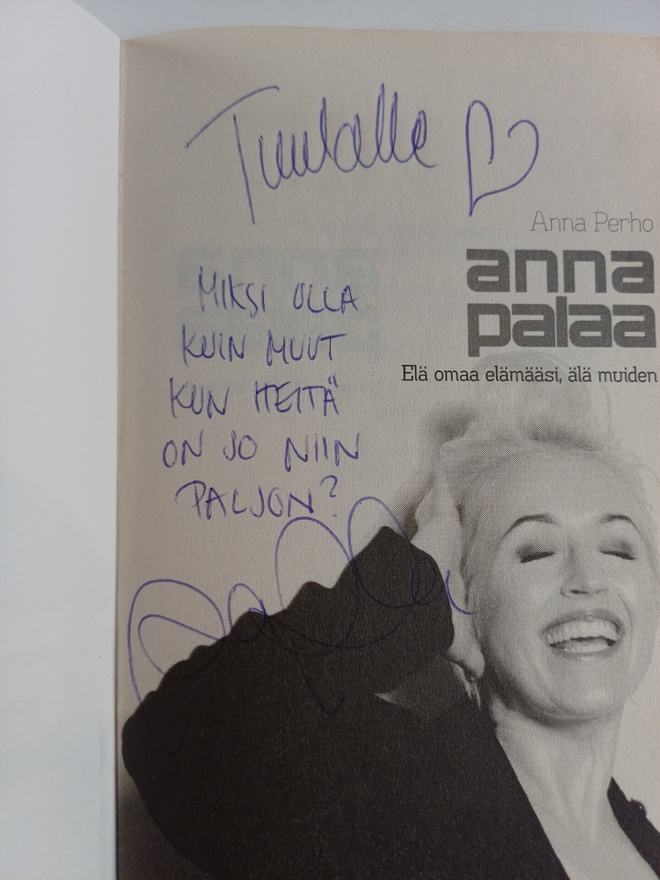 Tuulalle
Anna Perho
anna
palaa
Elä omaa elämääsi, älä muiden
MIKSI OLLA
KUIN MUUT
KUN HEITÄ
ON JO NIIN
PALJON?